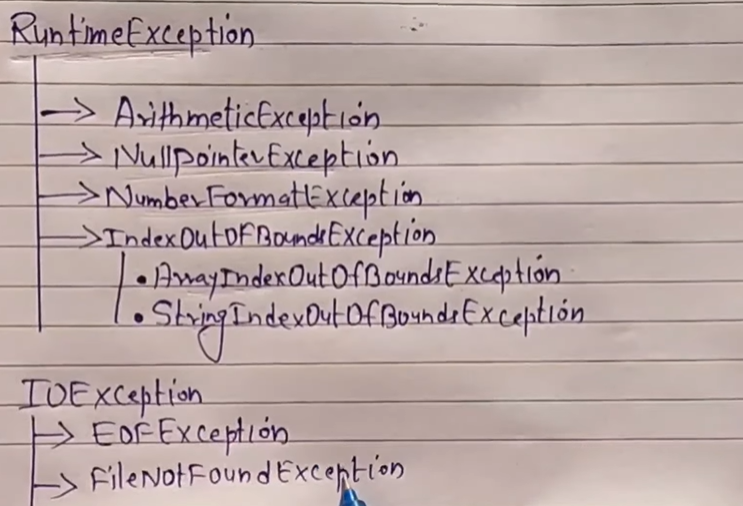 RuntimeException
ArithmeticException
NullpointerException
NumberFormatException
IndexOutOFBoundsException
• ArrayIndexOutOfBoundsException
• StringIndexOutOfBoundsException
IOException
EOFException
FileNotFoundException